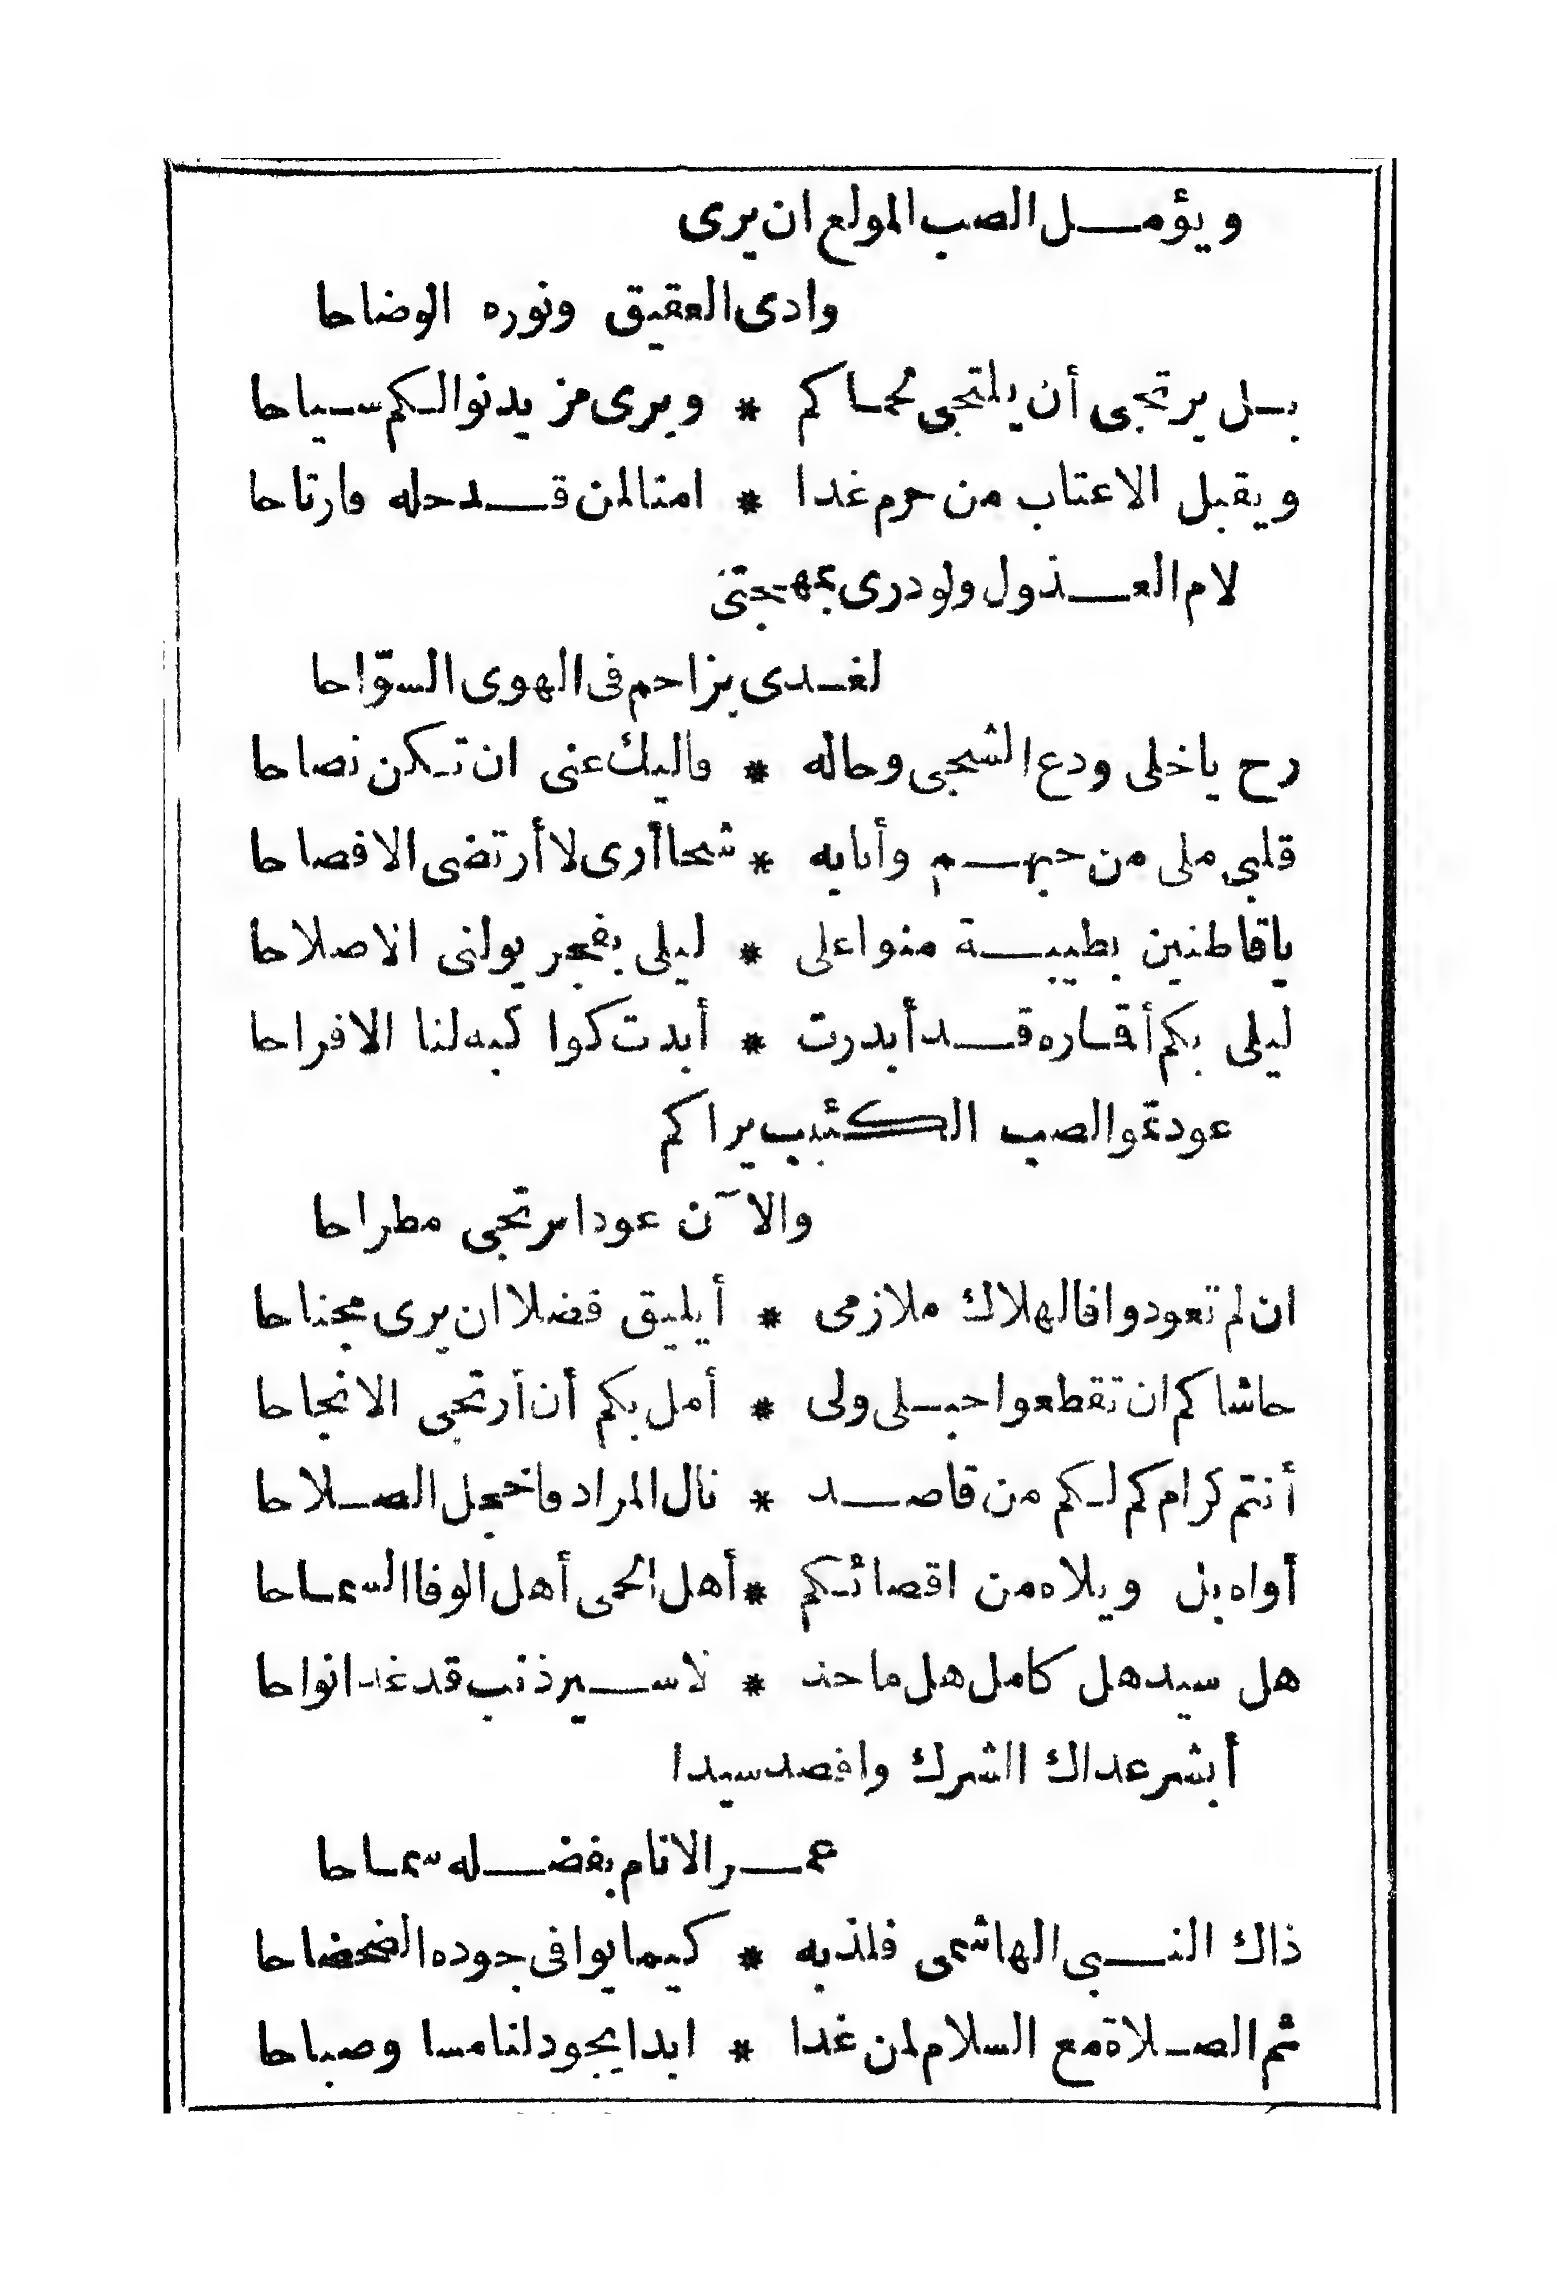 ويؤمل الصب المولع ان يرى
وادى العقيق ونوره الوضاحا
بل يرتجى أن يلتجى لحماكم * ويرى مزيد نوالكم سياحا
ويقبل الاعتاب من حرم غدا * امنا لمن قد حله وارتاحا
لام العذول ولو درى بمهجتى
لغدى يزاحم فى الهوى السوّاحا
رح ياخلى ودع الشجى وحاله * واليك عنى ان تكن نصاحا
قلبى ملى من حبهم وأنا به * شحا أرى لا أرتضى الافصاحا
ياقاطنين بطيبة منوا على * ليلى بفجر يولنى الاصلاحا
ليلى بكم أقماره قد أبدرت * أبدت كواكبه لنا الافراحا
عودتموا الصب الكئيب يراكم
والآن عودا يرتجى مطراحا
ان لم تعودوا فالهلاك ملازمى * أيليق فضلا ان يرى مجناحا
حاشاكم ان تقطعوا حبلى ولى * أمل بكم أن أرتجى الانجاحا
أنتم كرام كم لكم من قاصد * نال المراد فاخجل الصلاحا
أواه بل ويلاه من اقصائكم * أهل الحمى أهل الوفا السماحا
هل سيد هل كامل هل ماجد * لاسير ذنب قد غدا نواحا
أبشر عداك الشرك واقصد سيدا
عمر الانام بفضله سماحا
ذاك النبى الهاشمى فلذ به * كيما يوافى جوده الضحضاحا
ثم الصلاة مع السلام لمن غدا * ابدا يجود لنا مسا وصباحا